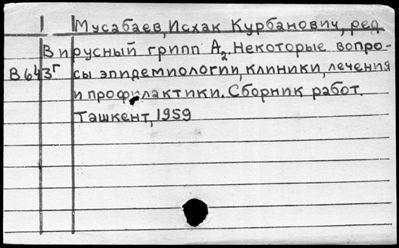 Мусабаев, Исхак Курбанович, ред.
Вирусный грипп А₂. Некоторые вопро-
В643г сы эпидемиологии, клиники, лечения
и профилактики. Сборник работ.
Ташкент, 1959